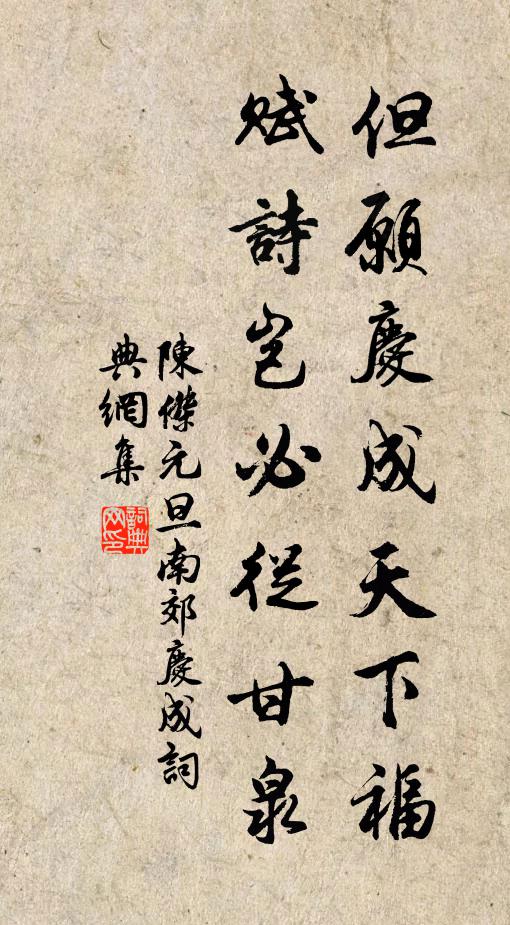 但願慶成天下福
賦詩豈必從甘泉
陳傑元旦南郊慶成詞
典網集
詞典网印